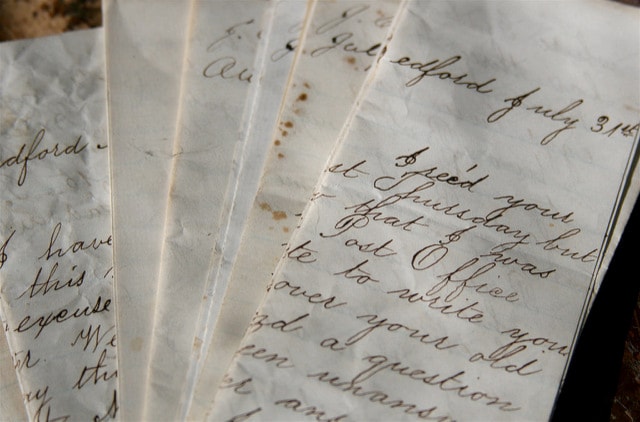 dford -
I have
this
excuse
r. We
J.
Jul
Au
edford July 31st
I rec'd your
st Thursday but
that I was
Post Office
te to write you
over your old
zd a question
een unansw
er ans